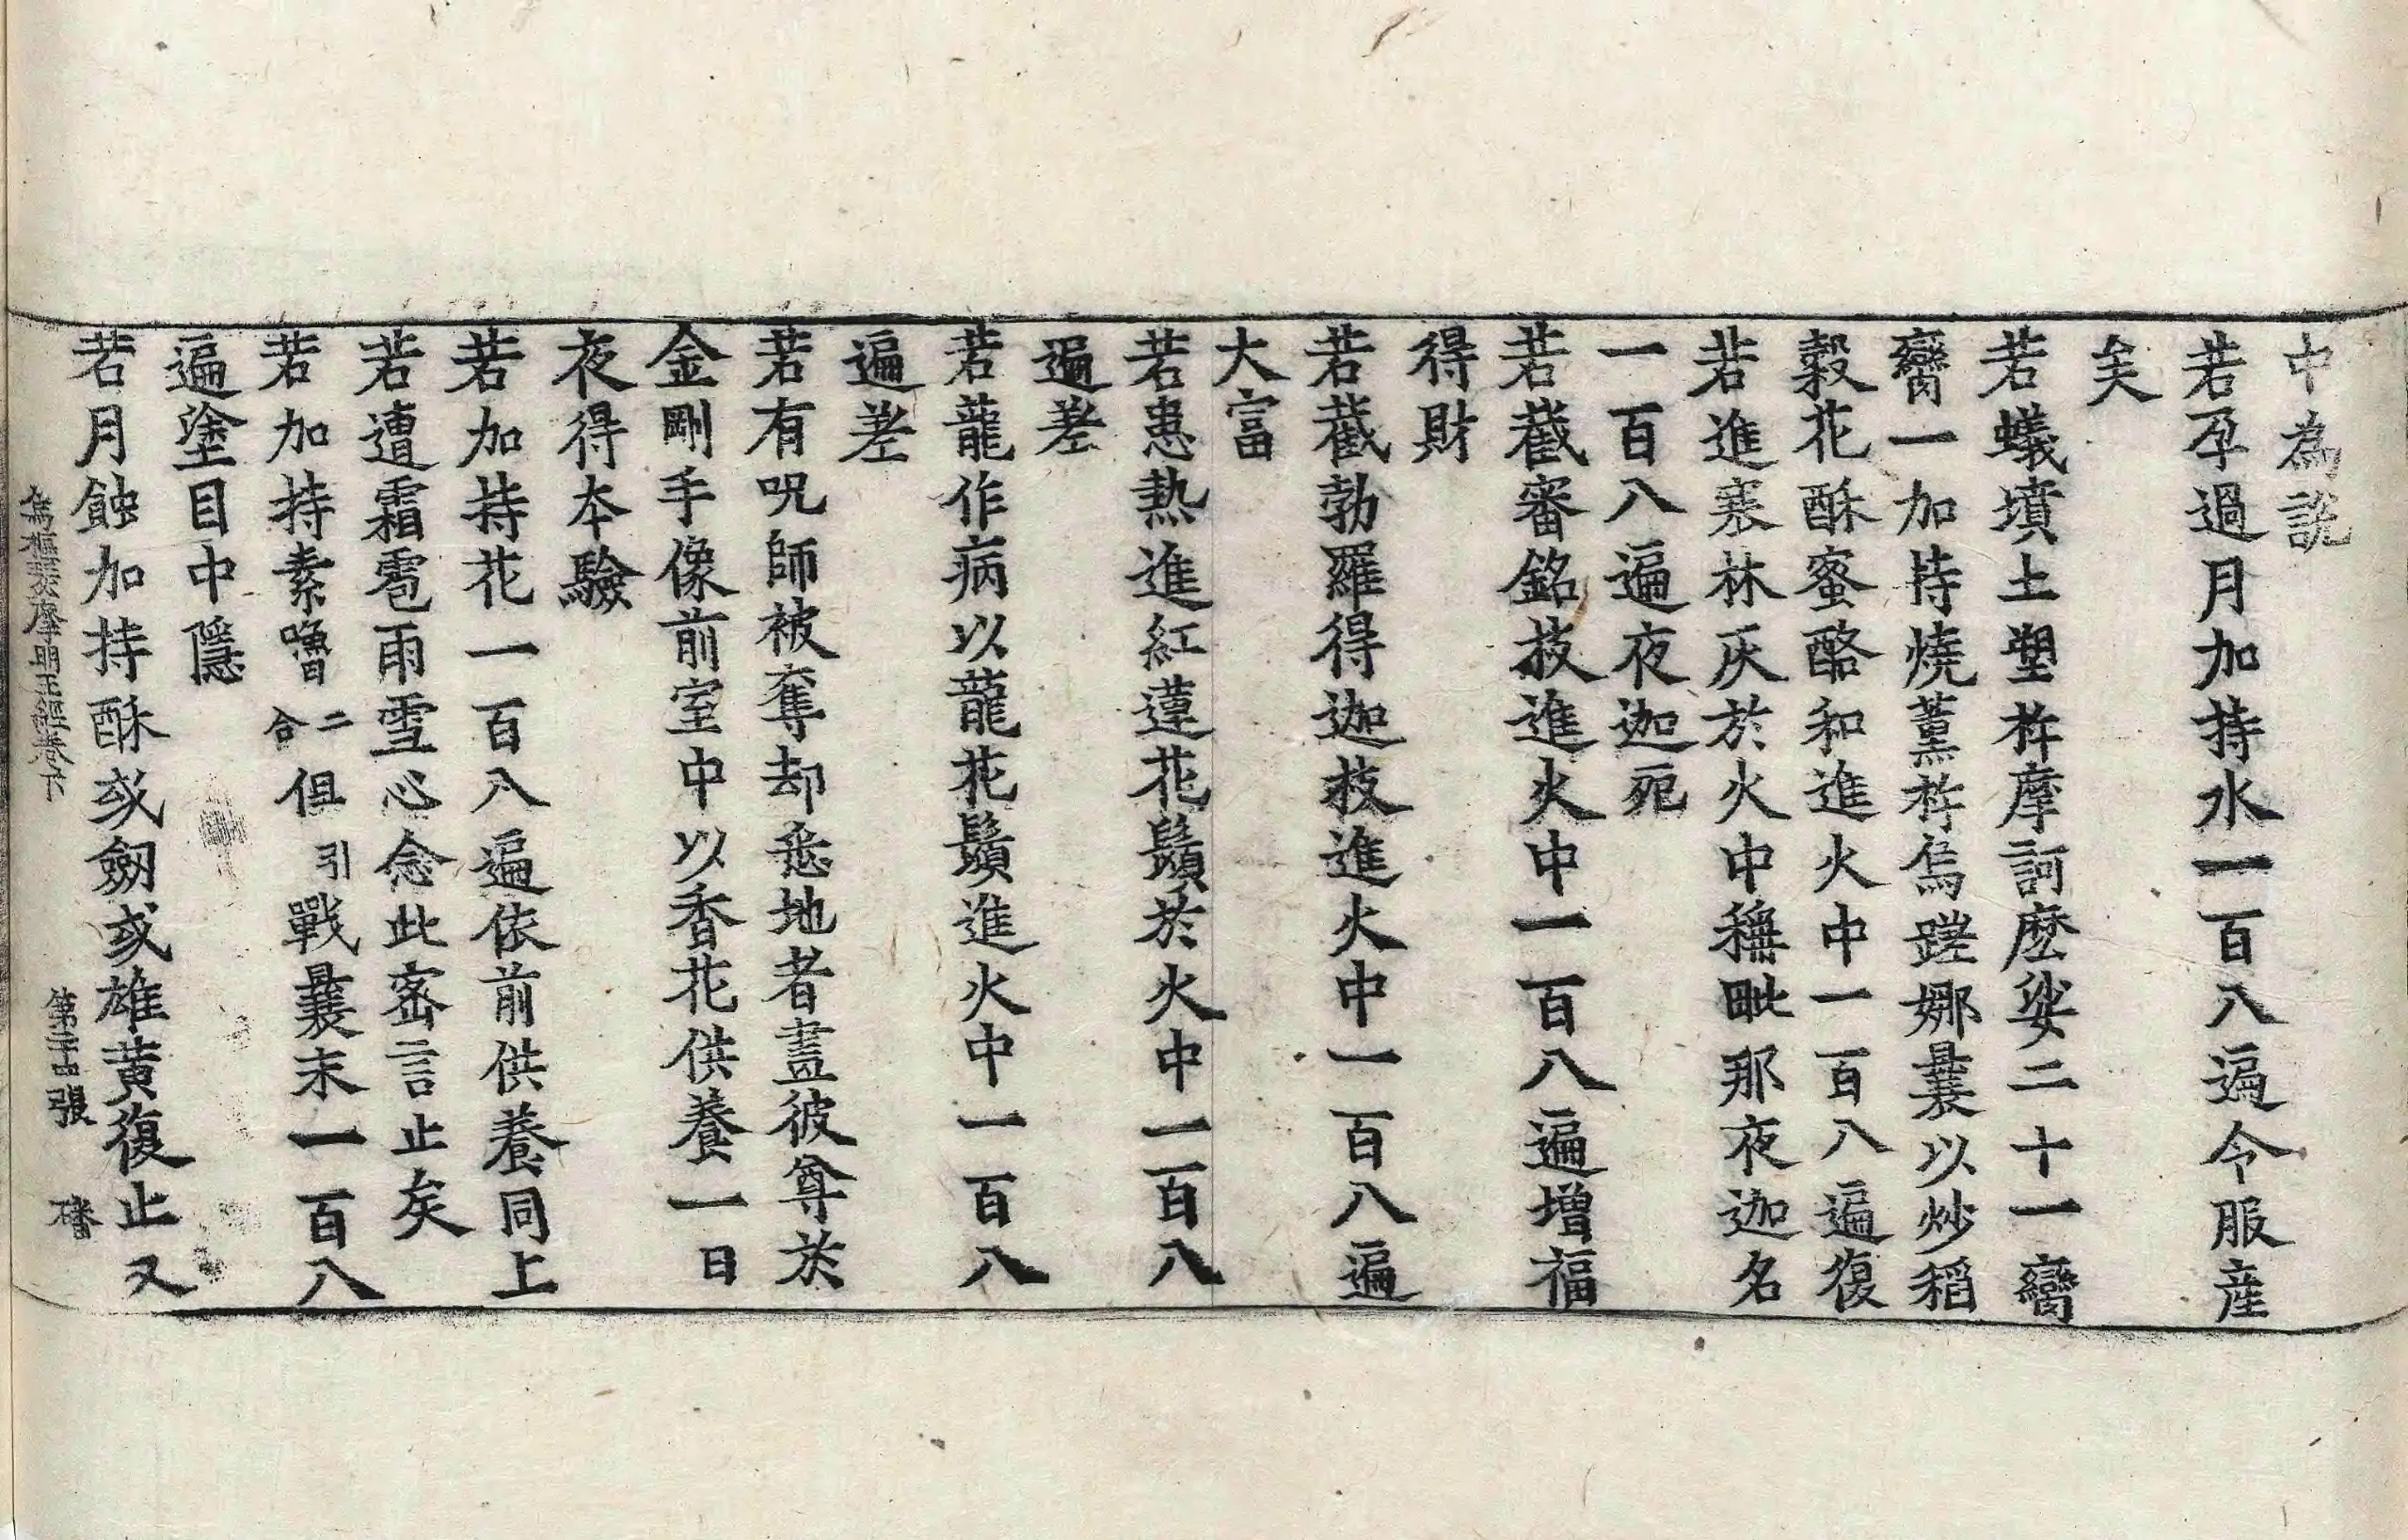 中為說
若孕過月加持水一百八遍令服産
矣
若蟻墳土塑杵摩訶麽娑二十一臠
臠一加持燒薰杵烏蹉娜曩以炒稻
糓花酥蜜酪和進火中一百八遍復
若進寒林灰於火中穰毗那夜迦名
一百八遍夜迦死
若截審銘枝進火中一百八遍增福
得財
若截勃羅得迦枝進火中一百八遍
大富
若患熱進紅蓮花鬚於火中一百八
遍差
若龍作病以龍花鬚進火中一百八
遍差
若有呪師被奪却悉地者畫彼尊於
金剛手像前室中以香花供養一日
夜得本驗
若加持花一百八遍依前供養同上
若遭霜雹雨雪心念此密言止矣
若加持素嚕二合但引戰曩末一百八
遍塗目中隱
若月蝕加持酥或劒或雄黃復止又
烏樞瑟摩明王經卷下 張